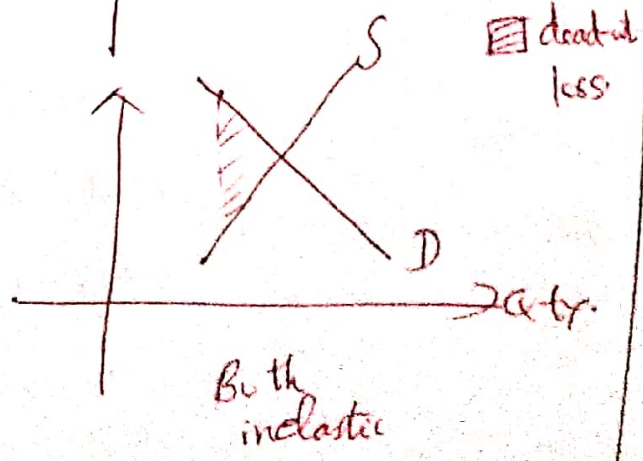 S
dead-wt
loss.
D
Q-ty.
Both
inelastic